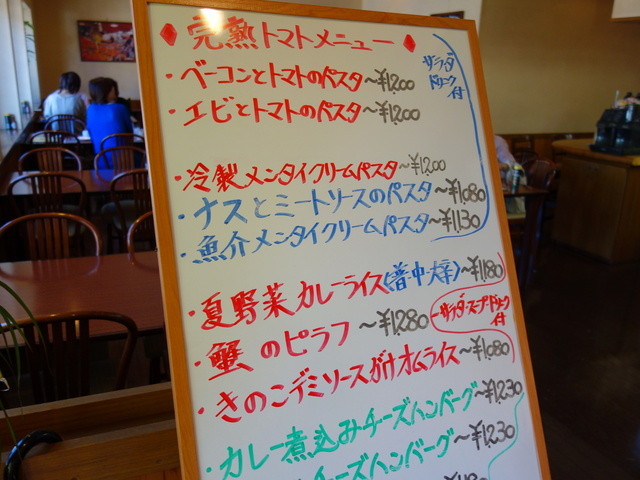 ♦完熟トマトメニュー♦
・ベーコンとトマトのパスタ〜¥1,200
・エビとトマトのパスタ〜¥1,200
サラダ
ドリンク
付
・冷製メンタイクリームパスタ〜¥1,200
・ナスとミートソースのパスタ〜¥1,080
・魚介メンタイクリームパスタ〜¥1,130
・夏野菜カレーライス(普・中・大辛)〜¥1,180
・蟹のピラフ〜¥1,280
サラダ・スープ・ドリンク
付
・きのこデミソースがけオムライス〜¥1,080
・カレー煮込みチーズハンバーグ〜¥1,230
チーズハンバーグ〜¥1,230